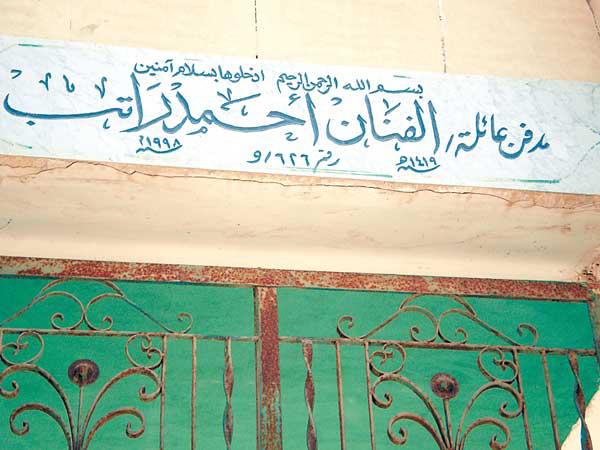 بسم الله الرحمن الرحيم ادخلوها بسلام آمنين
مدفن عائلة / الفنان أحمد راتب
١٤١٩هـ رقم ٦٢٦ / و ١٩٩٨م